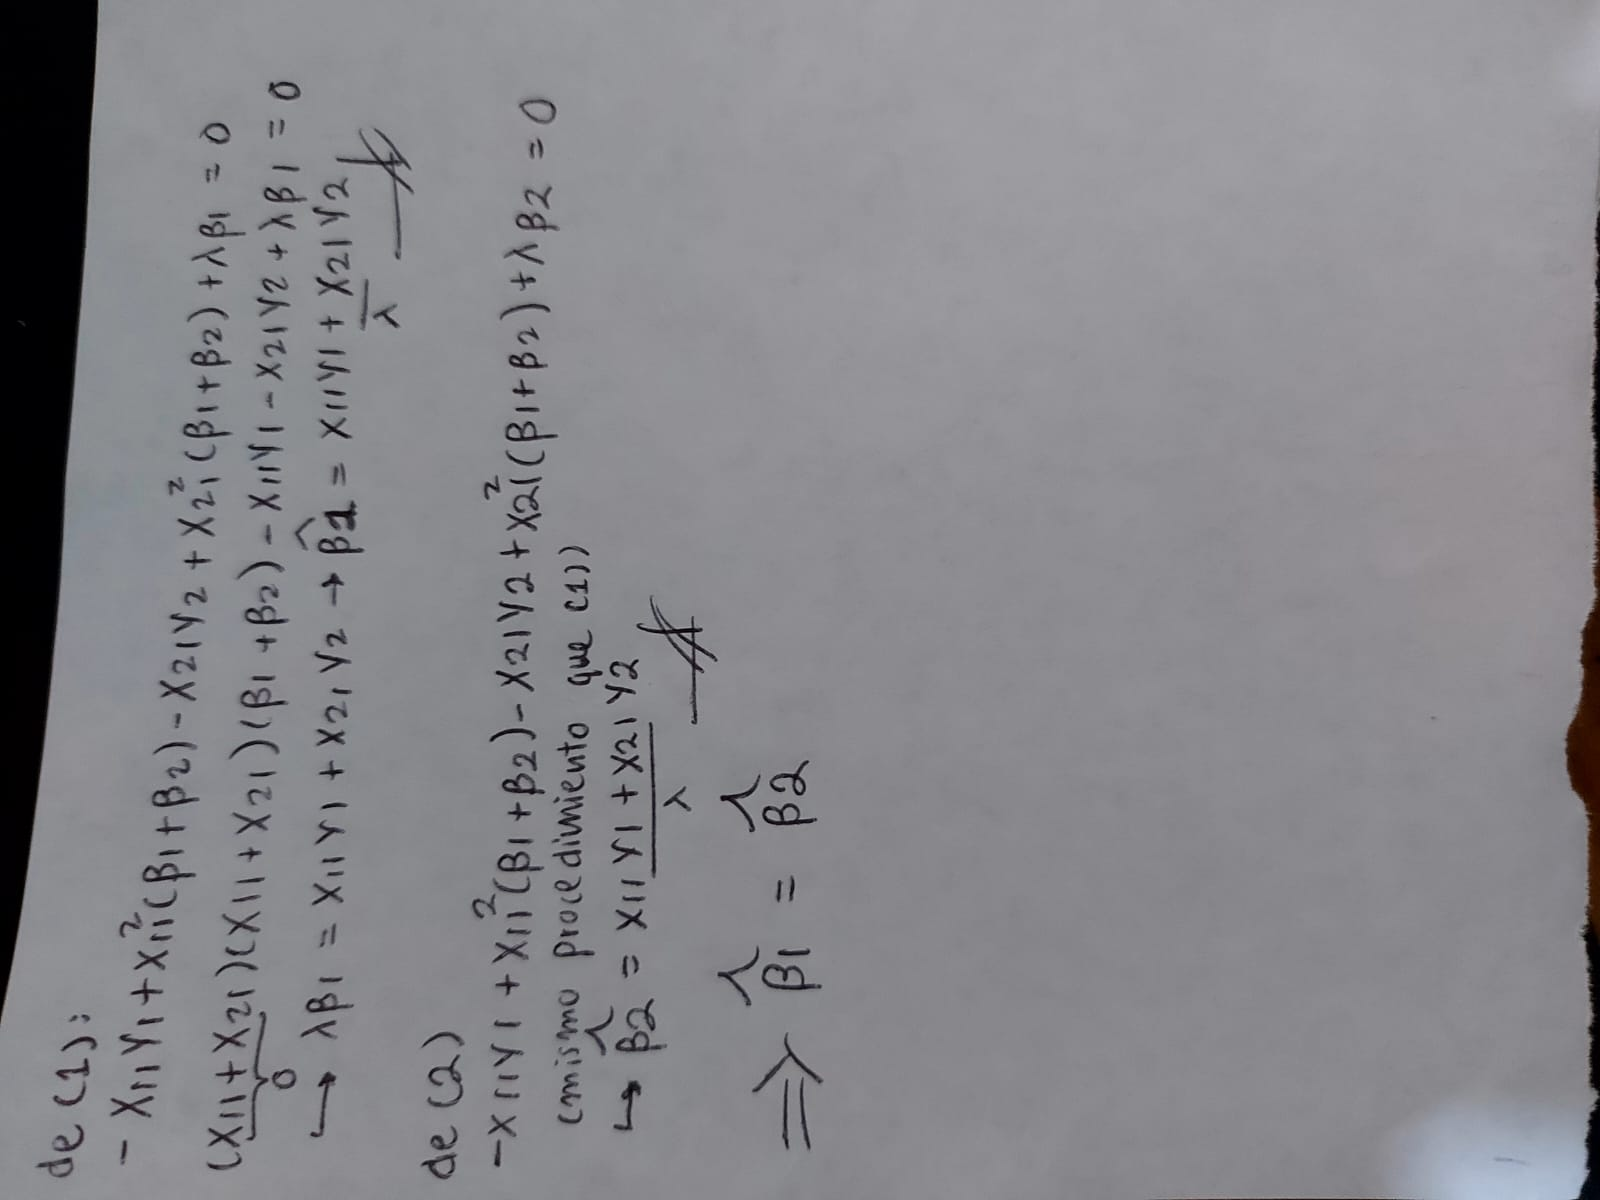 de (1):
- X11Y1 + X11²(β1+β2) - X21Y2 + X21²(β1+β2) + λβ1 = 0
(X11+X21)(X11+X21)(β1+β2) - X11Y1 - X21Y2 + λβ1 = 0
0
↳ λβ1 = X11Y1 + X21Y2 → β̂1 = X11Y1 + X21Y2
λ
de (2)
- X11Y1 + X11²(β1+β2) - X21Y2 + X21²(β1+β2) + λβ2 = 0
(mismo procedimiento que (1))
↳ β̂2 = X11Y1 + X21Y2
λ
⇒ β̂1 = β̂2